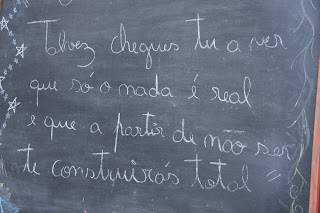 Talvez chegues tu a ver
que só o nada é real
e que a partir de não ser
te construirás total =